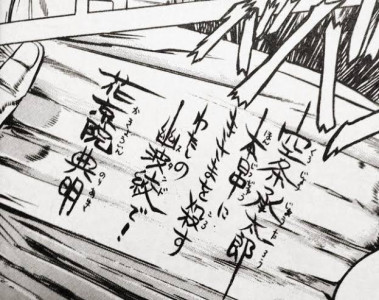 空条承太郎
本日中に
きさまを殺す
わたしの
幽波紋で！
花京院典明